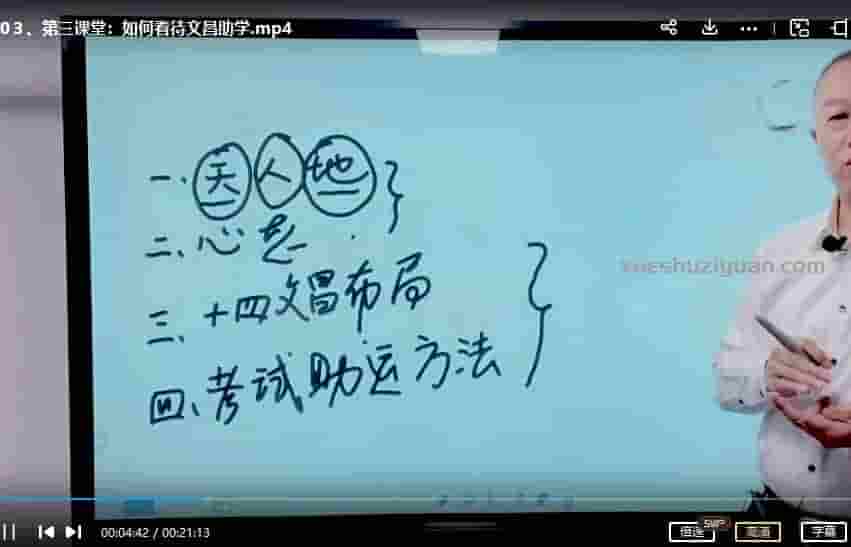 03、第三课堂：如何看待文昌助学.mp4
一、天人地
二、心态
三、十四文昌布局
四、考试助运方法
xueshuziyuan.com
00:04:42 / 00:21:13
倍速
SVIP
高清
字幕